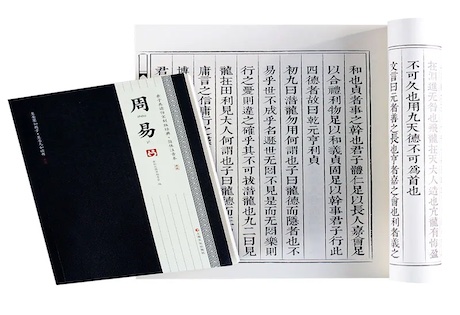 周易
在淵進无咎也飛龍在天大人造也亢龍有悔盈
不可久也用九天德不可為首也
文言曰元者善之長也亨者嘉之會也利者義之
和也貞者事之幹也君子體仁足以長人嘉會足
以合禮利物足以和義貞固足以幹事君子行此
四德者故曰乾元亨利貞
初九曰潛龍勿用何謂也子曰龍德而隱者也不
易乎世不成乎名遯世无悶不見是而无悶樂則
行之憂則違之確乎其不可拔潛龍也九二曰見
龍在田利見大人何謂也子曰龍德而
庸言之信庸行
博
君